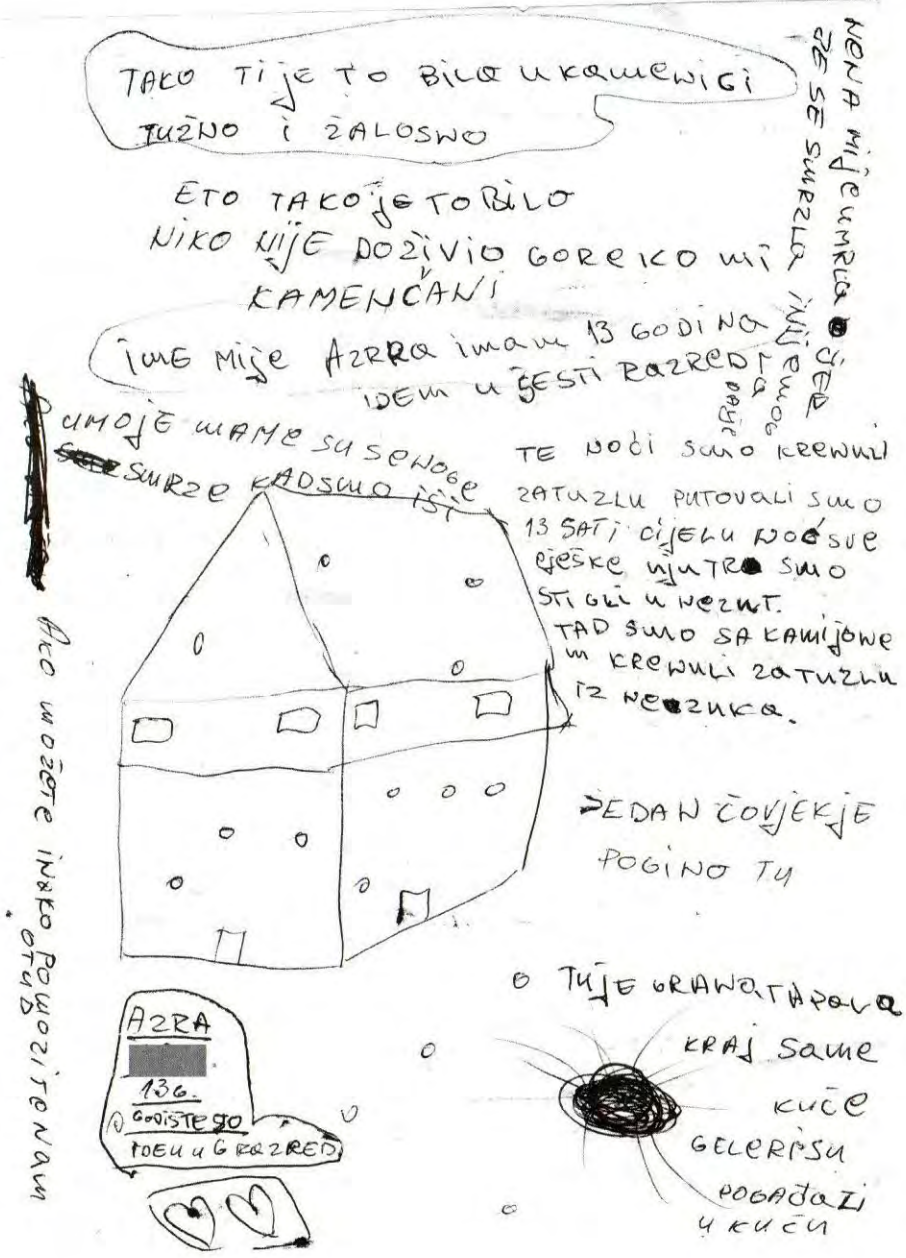 TAKO TI JE TO BILO U KAMENICI
TUŽNO I ŽALOSNO
ETO TAKO JE TO BILO
NIKO NIJE DOŽIVIO GORE KO MI
KAMENČANI
IME MI JE AZRRA imam 13 GODINA
IDEM U ŠESTI RAZRED
NONA MI JE UMRLA JER
JE SE SMRZLA I NIJE MOGLA
DALJE
UMOJE MAME SU SE NOGE
SMRZE KAD SMO IŠI
TE NOĆI SMO KRENULI
ZA TUZLU PUTOVALI SMO
13 SATI CIJELU NOĆ SVE
PJEŠKE UJUTRO SMO
STIGLI U NEZUK.
TAD SMO SA KAMIJONE
M KRENULI ZA TUZLU
IZ NEZUKA.
JEDAN ČOVJEK JE
POGINO TU
TU JE GRANATA PALA
KRAJ SAME
KUČE
GELERI SU
POGAĐAZI
U KUĆU
AKO MOŽETE IKAKO POMOZITE NAM
OTUD
AZRA
13 G.
GODIŠTE 80
IDEM U 6 RAZRED